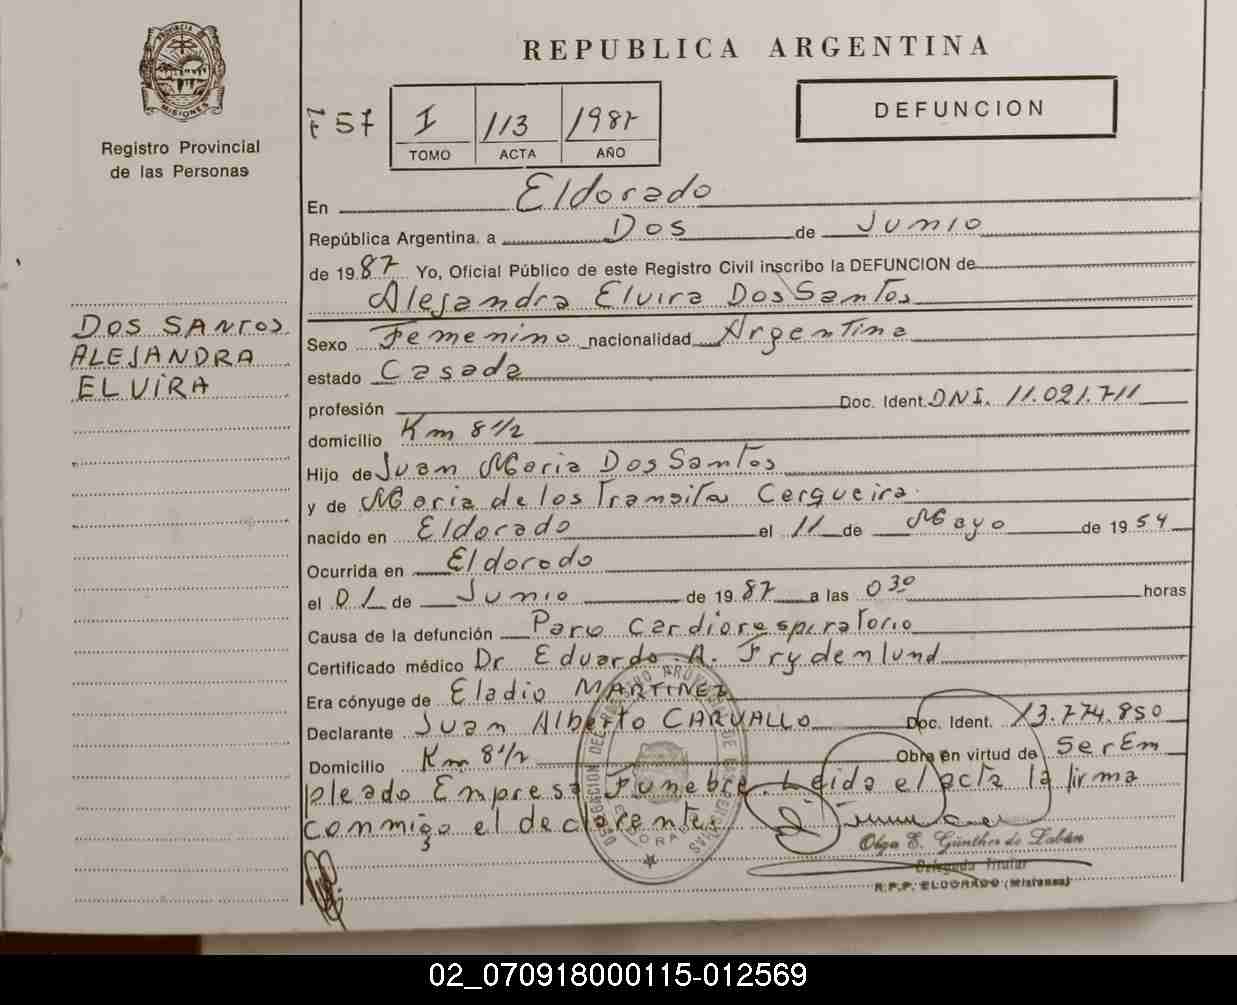 PROVINCIA DE
MISIONES
Registro Provincial
de las Personas
DOS SANTOS
ALEJANDRA
ELVIRA
REPUBLICA ARGENTINA
I 113 1987
TOMO ACTA AÑO
DEFUNCION
En Eldorado
República Argentina, a Dos de Junio
de 1987 Yo, Oficial Público de este Registro Civil inscribo la DEFUNCION de
Alejandra Elvira Dos Santos
Sexo Femenino nacionalidad Argentina
estado Casada
profesión Doc. Ident. DNI. 11.021.711
domicilio Km 8 1/2
Hijo de Juan Maria Dos Santos
y de Maria de los Transitos Cerqueira
nacido en Eldorado el 11 de Mayo de 1954
Ocurrida en Eldorado
el 01 de Junio de 1987 a las 0 30 horas
Causa de la defunción Paro Cardiorespiratorio
Certificado médico Dr. Eduardo A. Frydenlund
Era cónyuge de Eladio MARTINEZ
Declarante Juan Alberto CARVALLO Doc. Ident. 13.774.850
Domicilio Km 8 1/2 Obra en virtud de Ser Em
pleado Empresa Funebre. Leida el acta la firma
conmigo el declarante.
Olga E. Günther de Labán
Delegada Titular
R.P.P. ELDORADO (Misiones)
02_070918000115-012569